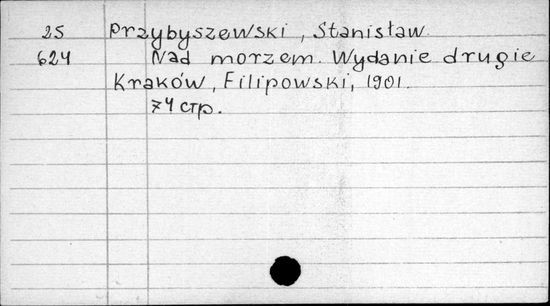 25 Przybyszewski, Stanisław.
624 Nad morzem. Wydanie drugie
Kraków, Filipowski, 1901.
74 стр.